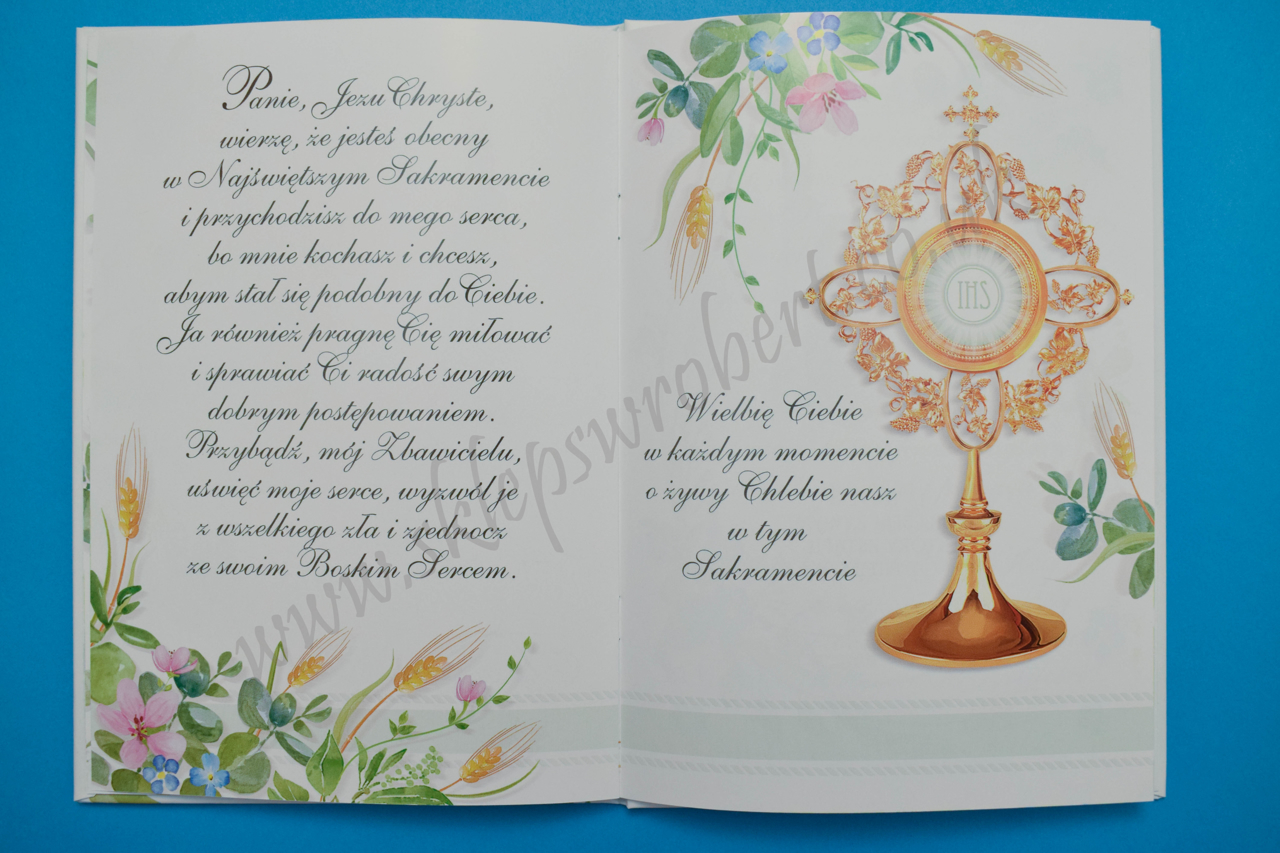 Panie, Jezu Chryste,
wierzę, że jesteś obecny
w Najświętszym Sakramencie
i przychodzisz do mego serca,
bo mnie kochasz i chcesz,
abym stał się podobny do Ciebie.
Ja również pragnę Cię miłować
i sprawiać Ci radość swym
dobrym postępowaniem.
Przybądź, mój Zbawicielu,
uświęć moje serce, wyzwól je
z wszelkiego zła i zjednocz
ze swoim Boskim Sercem.
Wielbię Ciebie
w każdym momencie
o żywy Chlebie nasz
w tym
Sakramencie
IHS